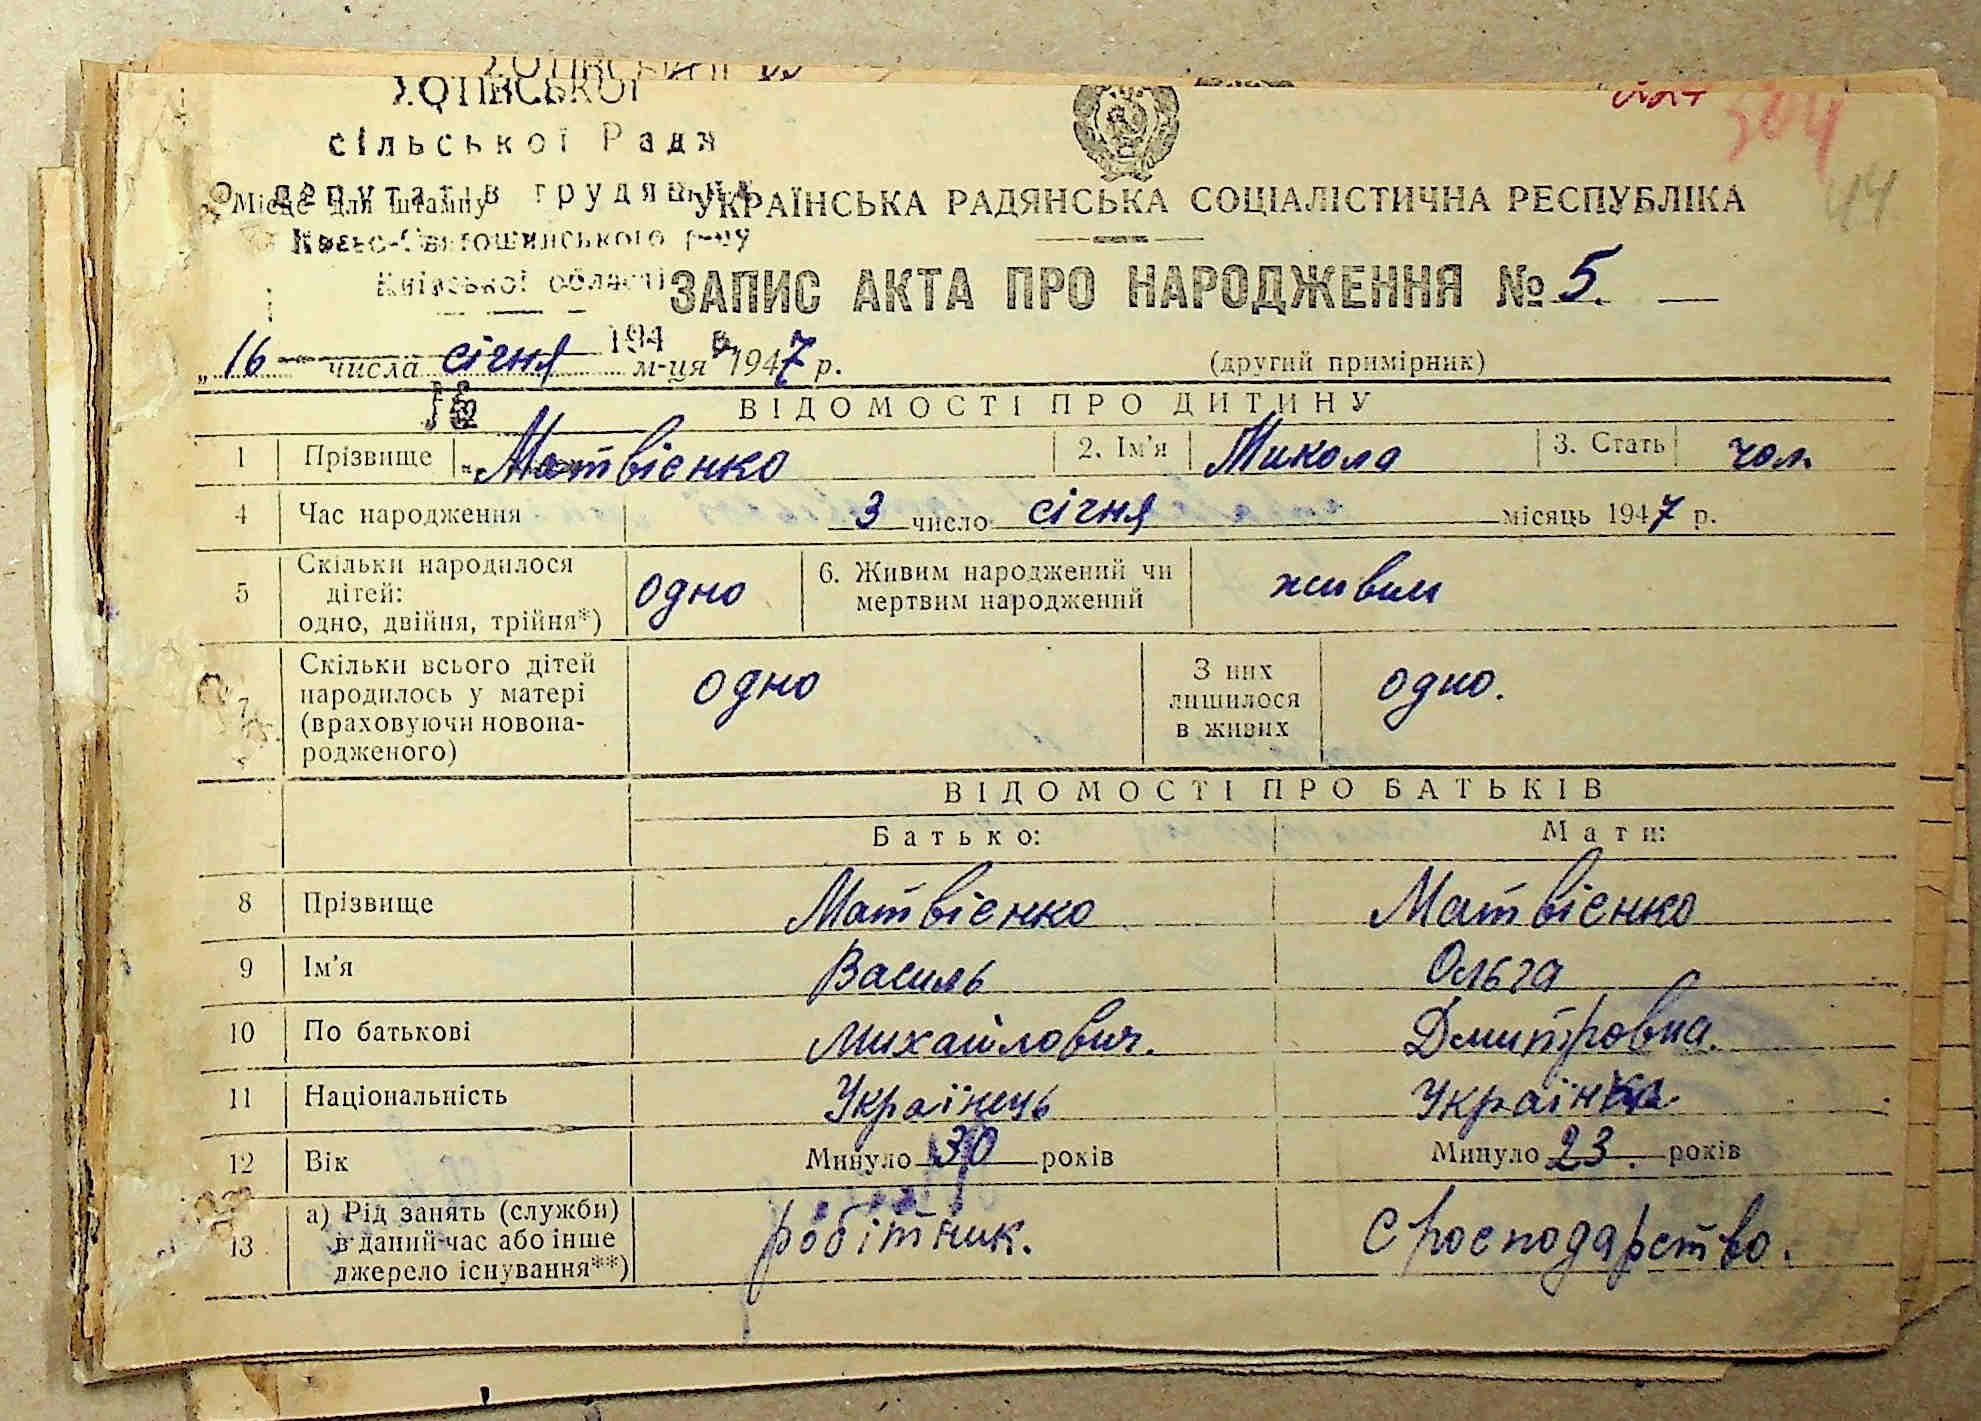 ХОТІВСЬКОЇ
сільської Ради
депутатів трудящих
Місце для штампу
Києво-Святошинського р-ну
Київської області
194 р.
№
304
44
УКРАЇНСЬКА РАДЯНСЬКА СОЦІАЛІСТИЧНА РЕСПУБЛІКА
ЗАПИС АКТА ПРО НАРОДЖЕННЯ № 5.
„ 16 числа січня м-ця 1947 р. (другий примірник)
ВІДОМОСТІ ПРО ДИТИНУ
1 Прізвище Матвієнко 2. Ім'я Микола 3. Стать чол.
4 Час народження 3 число січня місяць 1947 р.
5 Скільки народилося
дітей:
одно, двійня, трійня*) одно 6. Живим народжений чи
мертвим народжений живим
7 Скільки всього дітей
народилось у матері
(враховуючи новона-
родженого) одно З них
лишилося
в живих одно.
ВІДОМОСТІ ПРО БАТЬКІВ
Батько: Мати:
8 Прізвище Матвієнко Матвієнко
9 Ім'я Василь Ольга
10 По батькові Михайлович. Дмитровна.
11 Національність Українець Українка
12 Вік Минуло 30 років Минуло 23. років
13 а) Рід занять (служби)
в даний час або інше
джерело існування**) робітник.